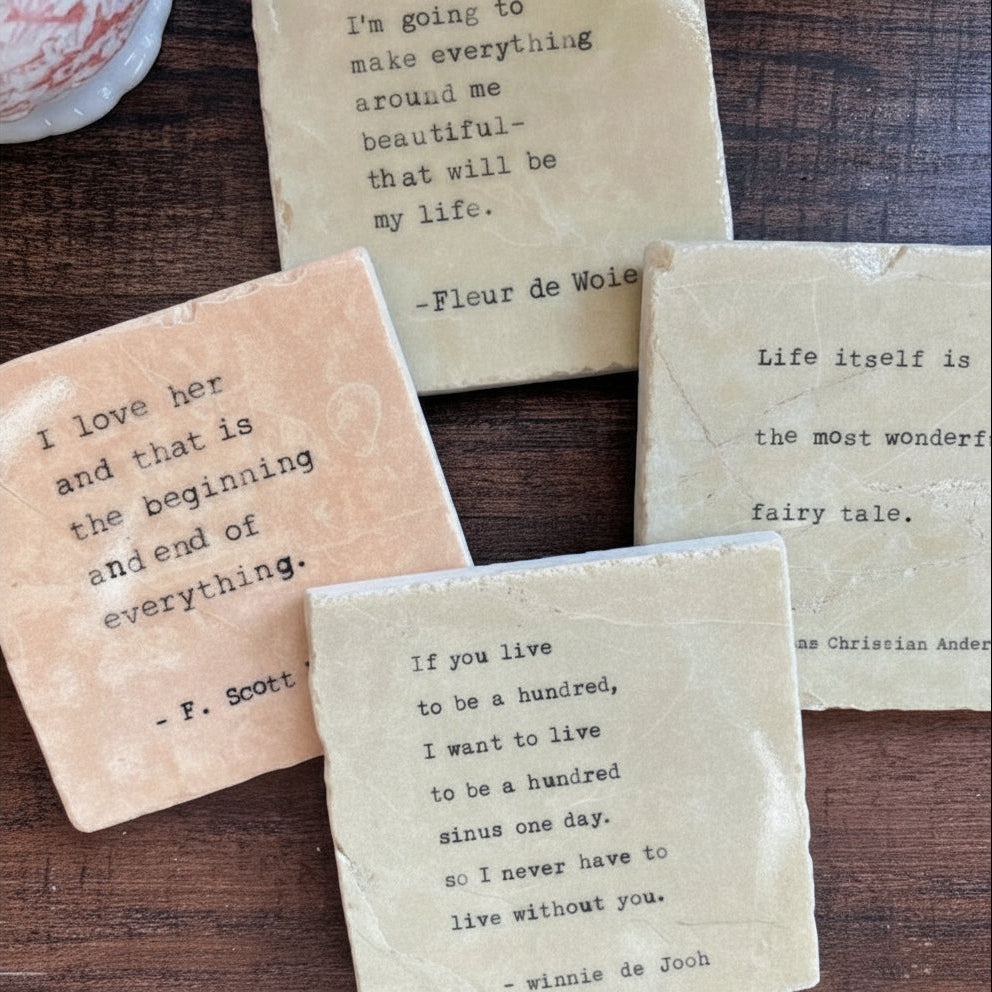 I'm going to
make everything
around me
beautiful-
that will be
my life.
-Fleur de Woie
I love her
and that is
the beginning
and end of
everything.
- F. Scott
Life itself is
the most wonderf
fairy tale.
ns Chrissian Ander
If you live
to be a hundred,
I want to live
to be a hundred
sinus one day.
so I never have to
live without you.
- winnie de Jooh